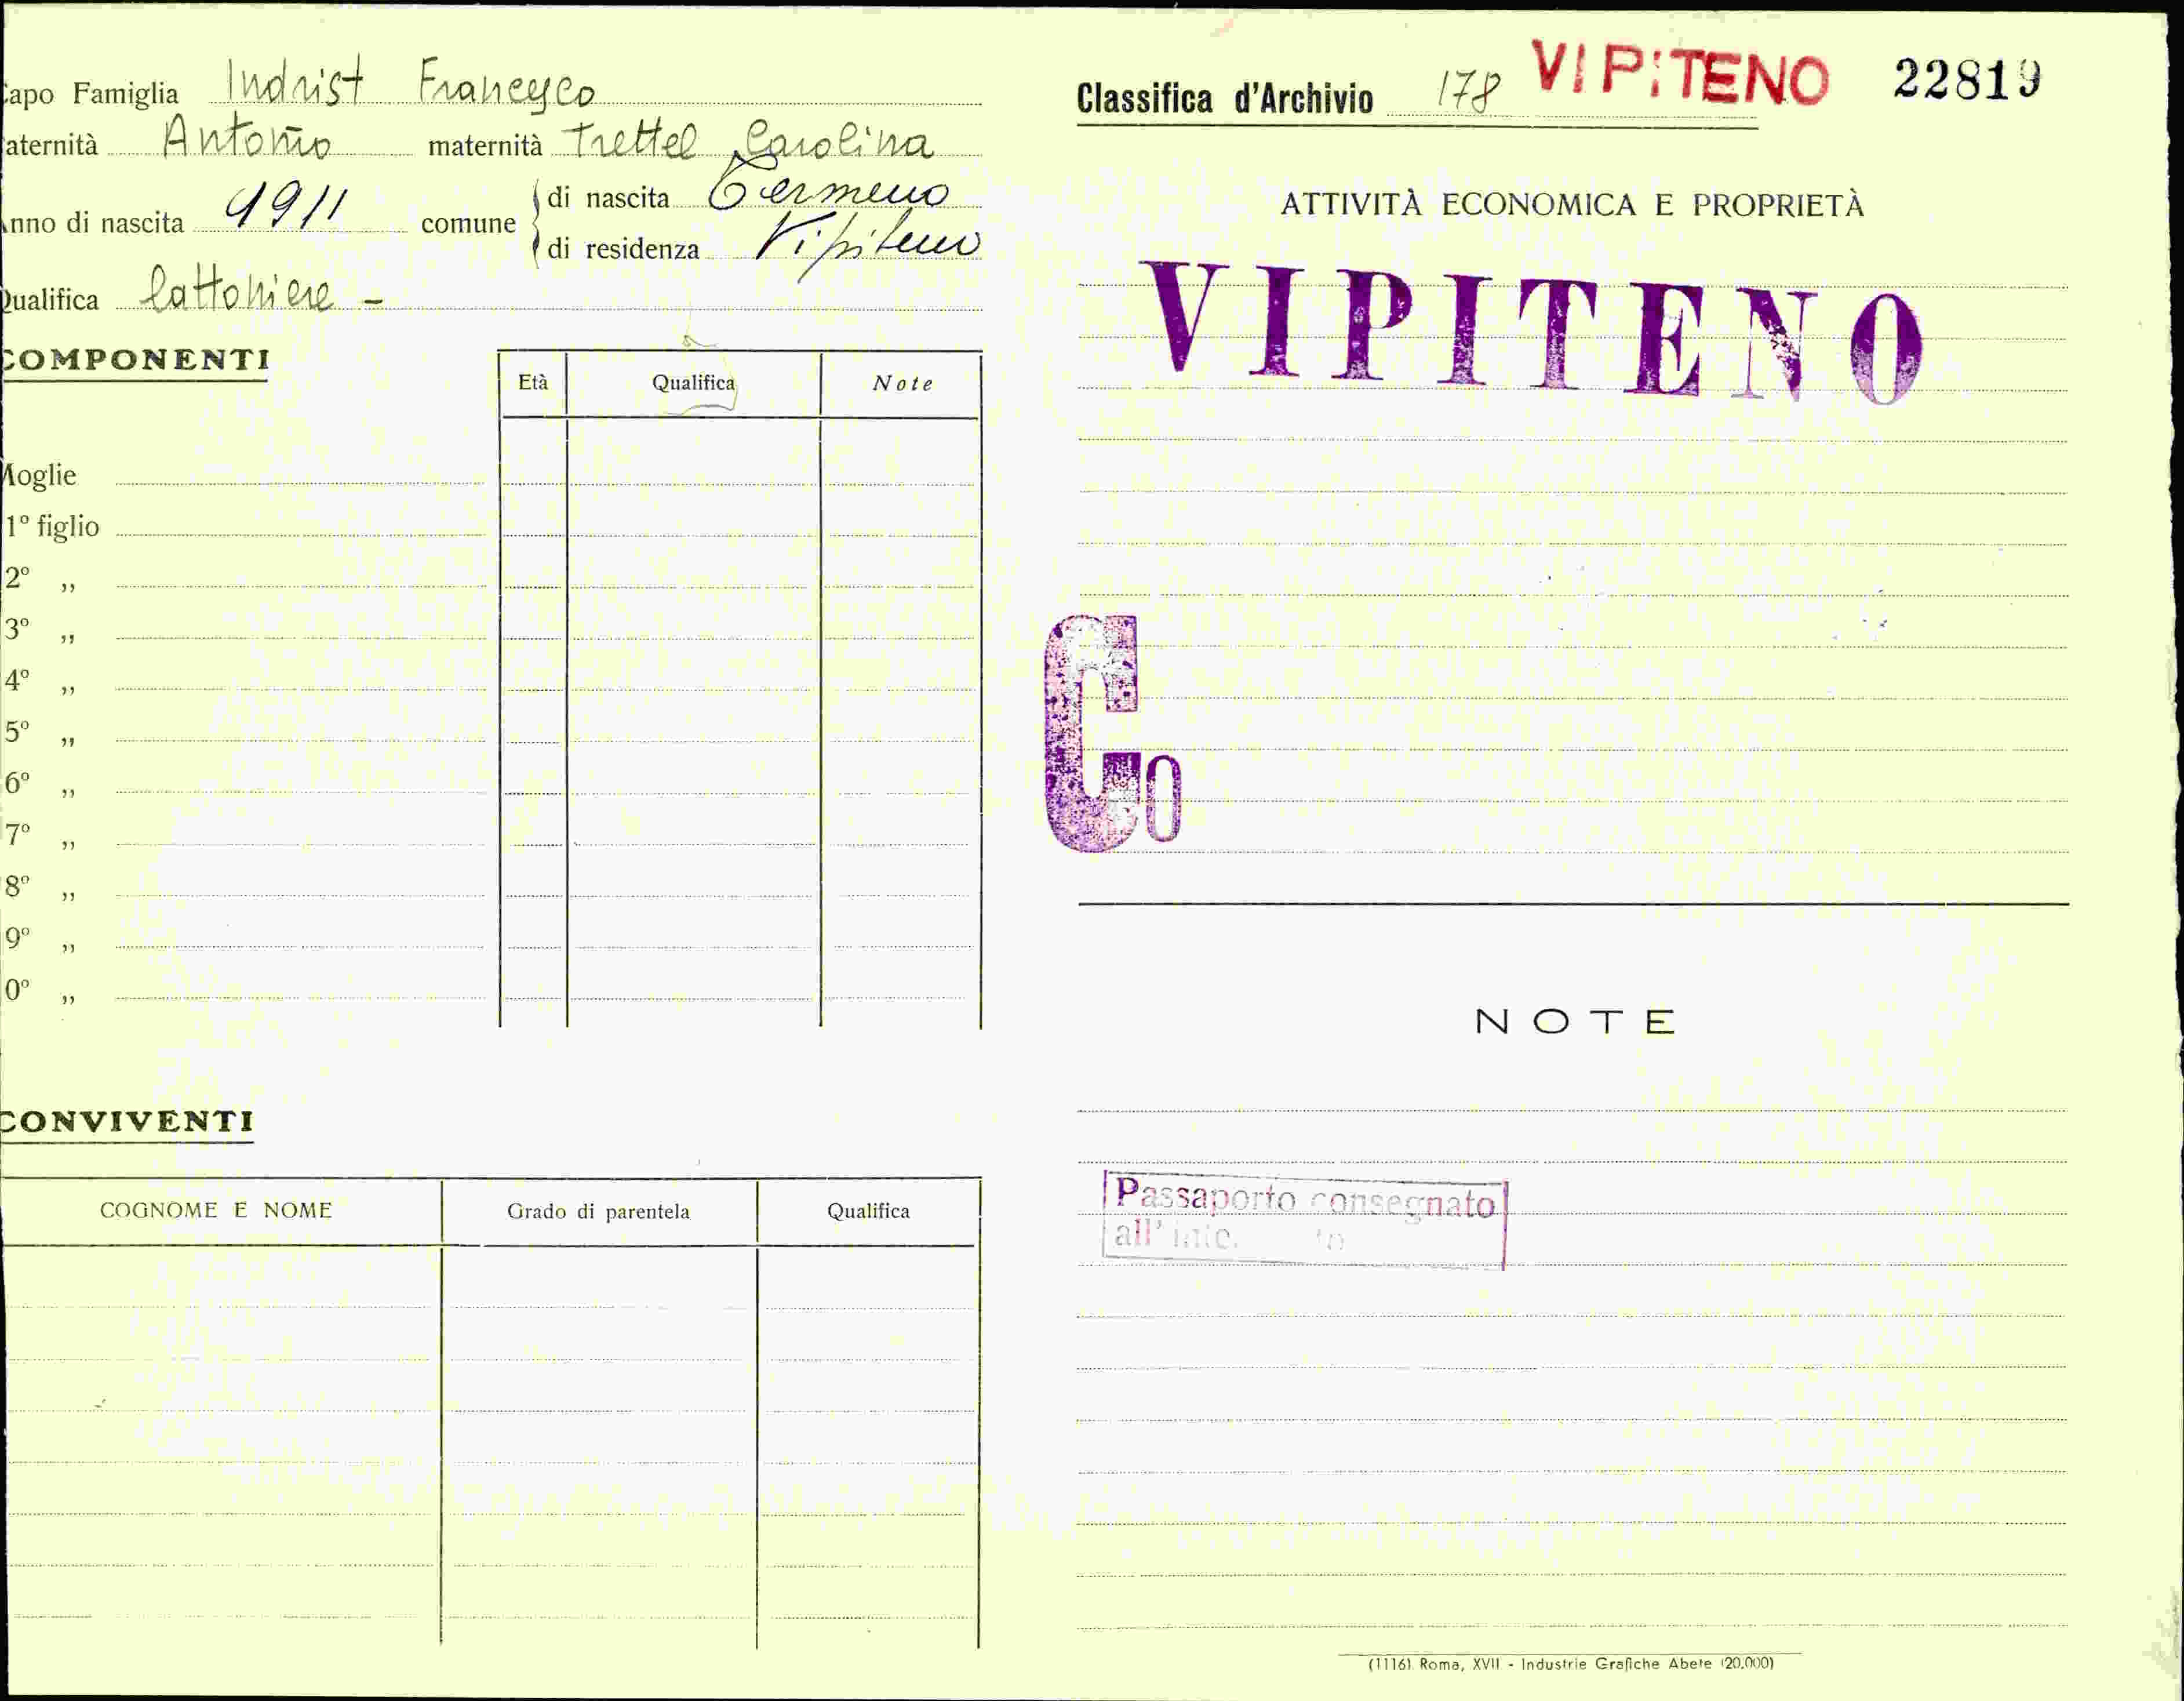 apo Famiglia Indrist Francesco
aternità Antonio maternità Trettel Carolina
nno di nascita 1911 comune di nascita Termeno
di residenza Vipiteno
Qualifica lattoniere -
COMPONENTI
Età Qualifica Note
Moglie
1º figlio
2º ,,
3º ,,
4º ,,
5º ,,
6º ,,
7º ,,
8º ,,
9º ,,
0º ,,
CONVIVENTI
COGNOME E NOME Grado di parentela Qualifica
Classifica d'Archivio 178 VIPITENO 22819
ATTIVITÀ ECONOMICA E PROPRIETÀ
VIPITENO
Co
NOTE
Passaporto consegnato
all'
(1116) Roma, XVII - Industrie Grafiche Abete (20.000)